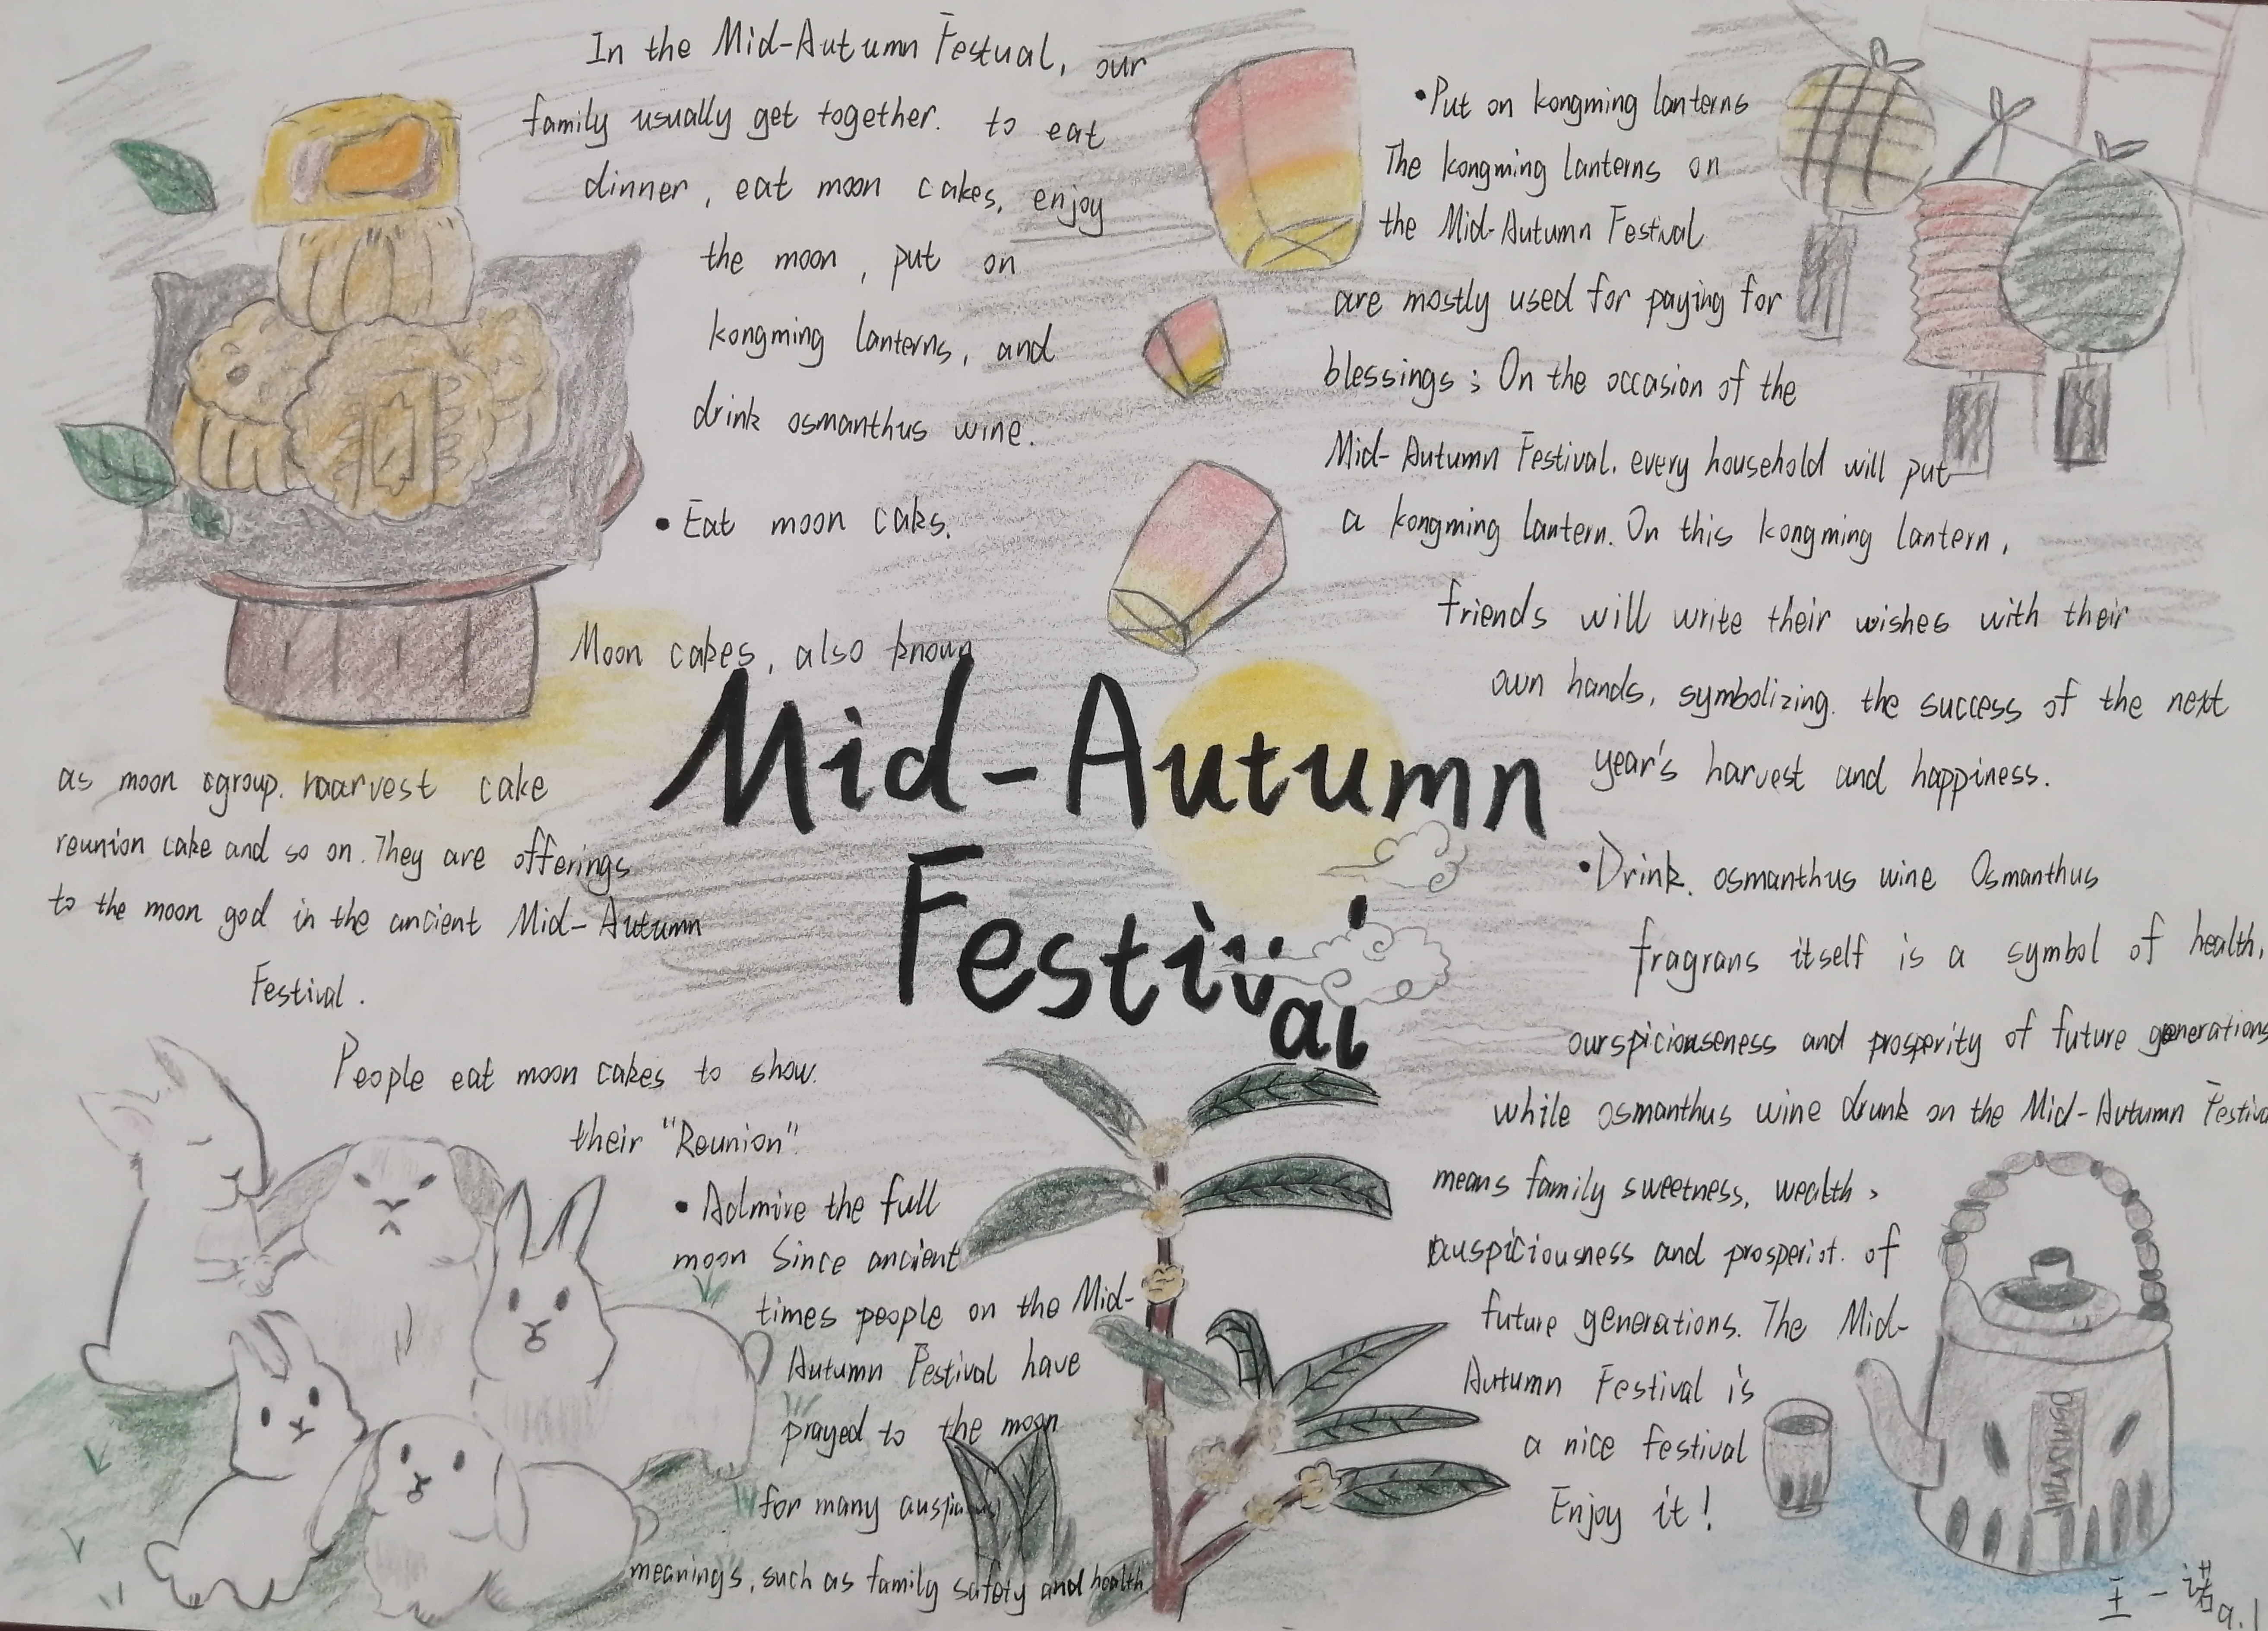 In the Mid-Autumn Festual, our
family usually get together. to eat
dinner, eat moon cakes, enjoy
the moon, put on
kongming lanterns, and
drink osmanthus wine.
•Eat moon caks.
Moon cakes, also known
as moon group. haarvest cake
reunion cake and so on. They are offerings
to the moon god in the ancient Mid-Autumn
Festival.
People eat moon cakes to show.
their "Reunion".
•Admire the full
moon Since ancient
times people on the Mid-
Autumn Festival have
prayed to the moon
for many
meanings, such as family safety and health.
Mid-Autumn
Festival
•Put on kongming lanterns
The kongming lanterns on
the Mid-Autumn Festival
are mostly used for paying for
blessings; On the occasion of the
Mid-Autumn Festival. every household will put
a kongming lantern. On this kongming lantern,
friends will write their wishes with their
own hands, symbolizing. the success of the next
year's harvest and happiness.
•Drink. osmanthus wine Osmanthus
fragrans itself is a symbol of health,
ourspiciouseness and prosperity of future generations
while osmanthus wine drunk on the Mid-Autumn Festiva
means family sweetness, wealth,
auspiciousness and prosperiot. of
future generations. The Mid-
Autumn Festival is
a nice festival
Enjoy it!
王一诺 9.1